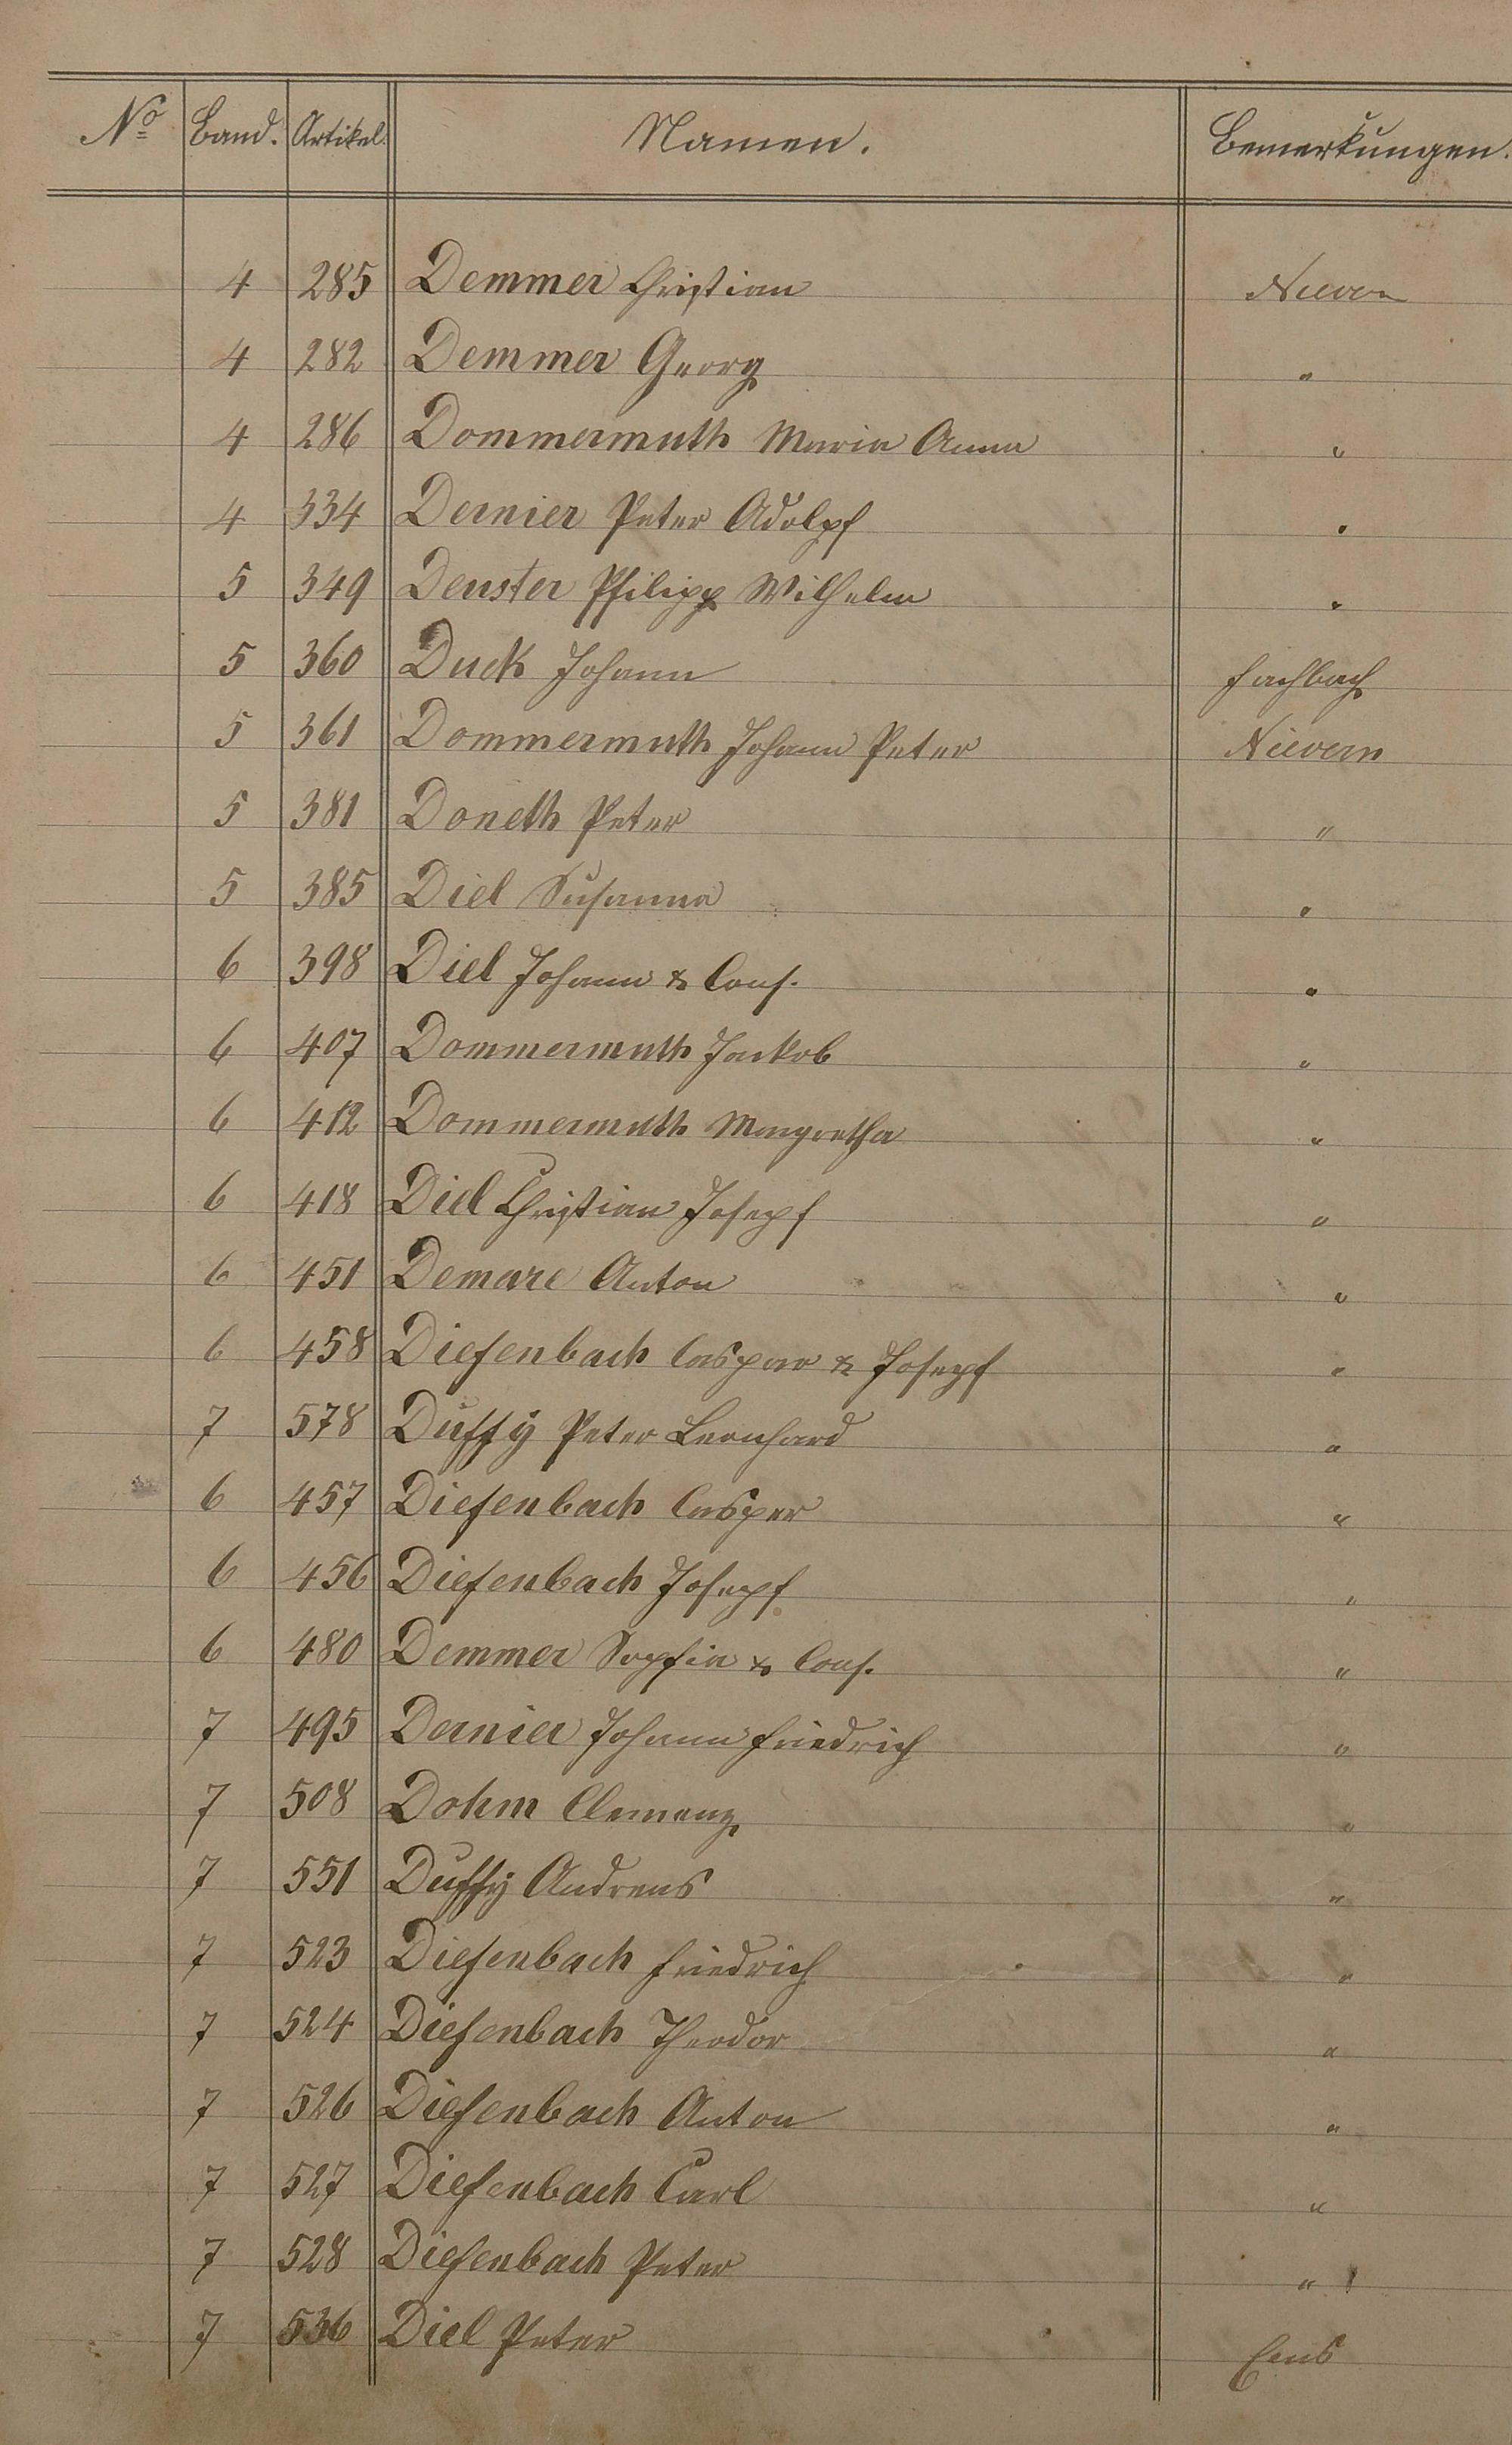 No Band. Artikel. Namen. Bemerkungen.
4 285 Demmer Christian Nievern
4 282 Demmer Georg "
4 286 Dommermuth Maria Anna "
4 334 Dernier Peter Adolph "
5 349 Denster Philipp Wilhelm "
5 360 Duck Johann Fachbach
5 361 Dommermuth Johann Peter Nievern
5 381 Doneth Peter "
5 385 Diel Susanna "
6 398 Diel Johann & Cons. "
6 407 Dommermuth Jackob "
6 412 Dommermuth Margretha "
6 418 Diel Christian Joseph "
6 451 Demare Anton "
6 458 Diefenbach Caspar & Joseph "
7 578 Duffÿ Peter Leonhard "
6 457 Diefenbach Casper "
6 456 Diefenbach Joseph "
6 480 Demmer Sophia & Cons. "
7 495 Dernier Johann Friedrich "
7 508 Dohm Clemenz "
7 551 Duffÿ Andreas "
7 523 Diefenbach Friedrich "
7 524 Diefenbach Theodor "
7 526 Diefenbach Anton "
7 527 Diefenbach Carl "
7 528 Diefenbach Peter "
7 536 Diel Peter Ems